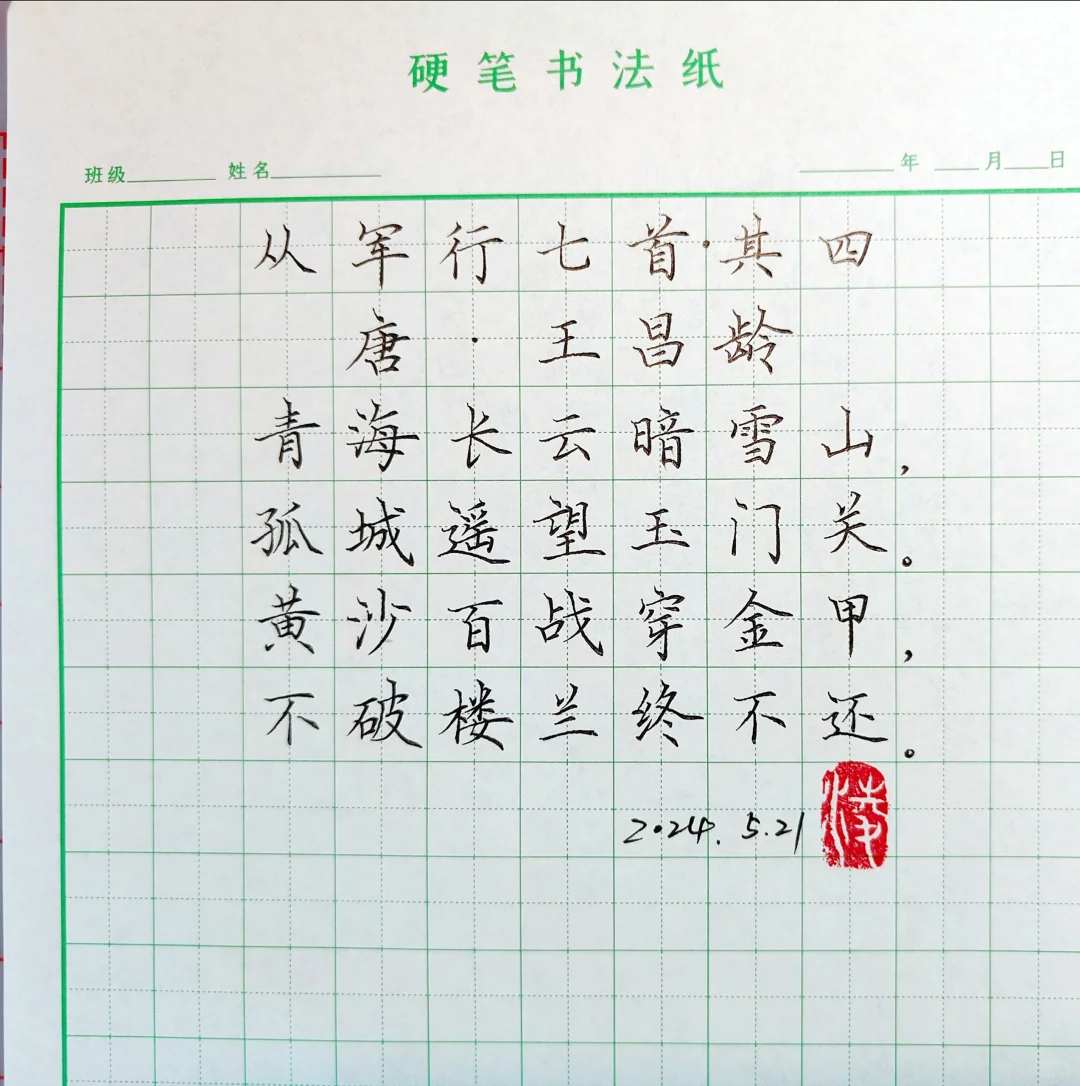 硬笔书法纸
班级 姓名 年 月 日
从军行七首·其四
唐·王昌龄
青海长云暗雪山,
孤城遥望玉门关。
黄沙百战穿金甲,
不破楼兰终不还。
2024.5.21